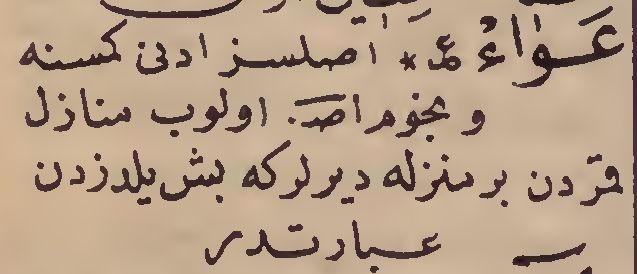 عَوَاءُ ع * اصلسز ادنى كمسنه
و نجوم اصـ. اولوب منازل
قمردن بر منزله ديرلر كه بش يلدزدن
عبارتدر